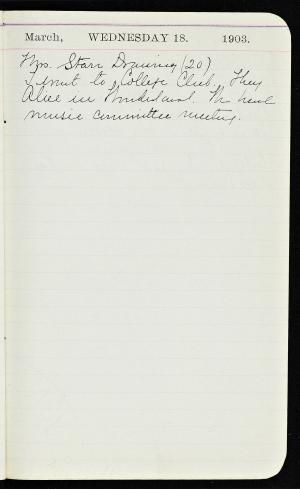 March, WEDNESDAY 18. 1903.
Mrs. Starr Drawing (20)
I went to College Club. They
Alice in Wonderland. We have
music committee meeting.